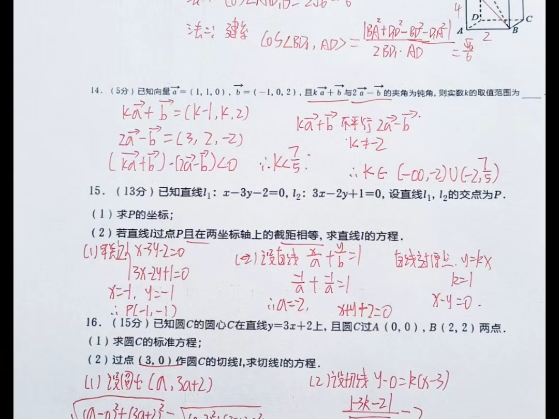 法二: 建系 cos<BD₁, AD> = |BA²+DD₁²-BD²-D₁A²| / 2BD₁·AD = √6/6
4
D
C
A
B
2
14. (5分) 已知向量a⃗=(1, 1, 0), b⃗=(-1, 0, 2), 且ka⃗+b⃗与2a⃗-b⃗的夹角为钝角, 则实数k的取值范围为
ka⃗+b⃗=(k-1, k, 2)
ka⃗+b⃗ 不平行 2a⃗-b⃗
2a⃗-b⃗=(3, 2, -2)
k≠-2
(ka⃗+b⃗)·(2a⃗-b⃗)<0 ∴k<7/5 ∴k∈(-∞,-2)∪(-2,7/5)
15. (13分) 已知直线l₁: x-3y-2=0, l₂: 3x-2y+1=0, 设直线l₁, l₂的交点为P.
(1) 求P的坐标;
(2) 若直线l过点P且在两坐标轴上的截距相等, 求直线l的方程.
(1) 联立{x-3y-2=0
3x-2y+1=0
x=-1, y=-1
∴P(-1,-1)
(2) 设直线 x/a+y/a=1
-1/a+-1/a=1
∴a=-2, x+y+2=0
y=kx
k=1
x-y=0.
16. (15分) 已知圆C的圆心C在直线y=3x+2上, 且圆C过A(0, 0), B(2, 2)两点.
(1) 求圆C的标准方程;
(2) 过点(3, 0)作圆C的切线l, 求切线l的方程.
(1) 设圆心(a, 3a+2)
(2) 设切线 y-0=k(x-3)